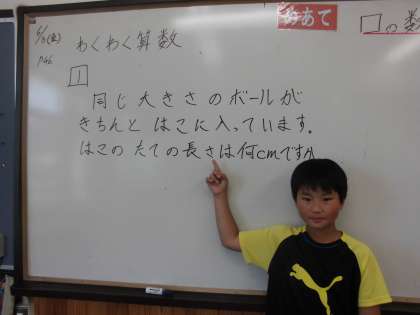 6/3(金)
P46
わくわく算数
めあて
□の数
1
同じ大きさのボールが
きちんと はこに入っています。
はこの たての長さは何cmですか